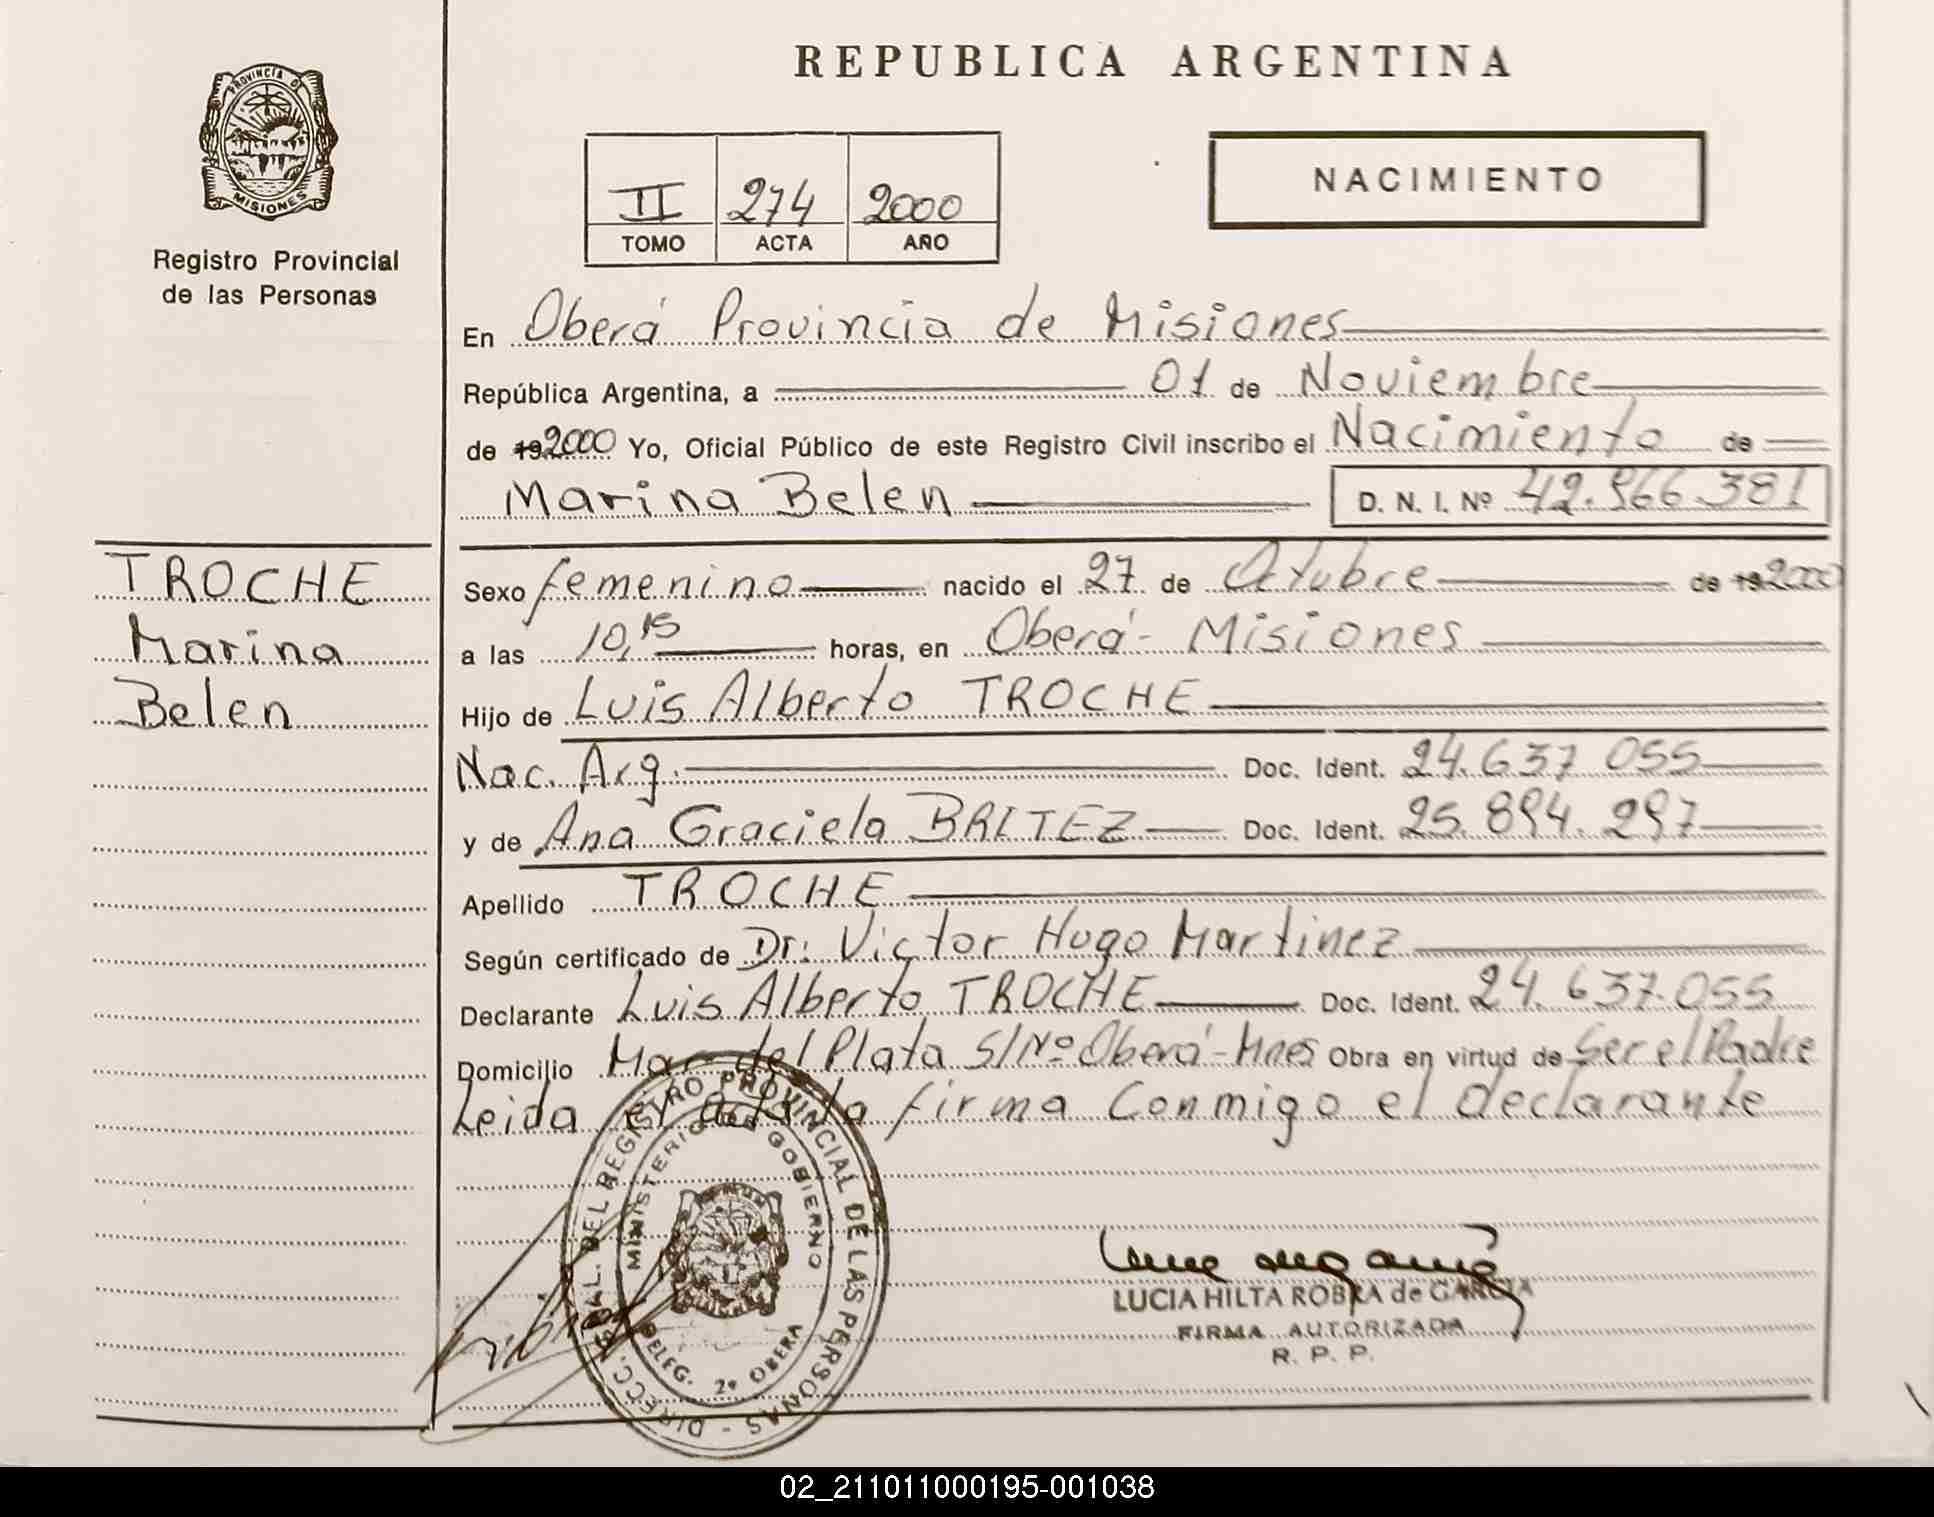 REPUBLICA ARGENTINA
PROVINCIA D
MISIONES
Registro Provincial
de las Personas
II 274 2000
TOMO ACTA AÑO
NACIMIENTO
En Oberá Provincia de Misiones
República Argentina, a 01 de Noviembre
de 192000 Yo, Oficial Público de este Registro Civil inscribo el Nacimiento de
Marina Belen D. N. I. Nº 42.966.381
TROCHE
Marina
Belen
Sexo femenino nacido el 27 de Octubre de 192000
a las 10,15 horas, en Oberá - Misiones
Hijo de Luis Alberto TROCHE
Nac. Arg. Doc. Ident. 24.637.055
y de Ana Graciela BRITEZ Doc. Ident. 25.894.297
Apellido TROCHE
Según certificado de Dr. Victor Hugo Martinez
Declarante Luis Alberto TROCHE Doc. Ident. 24.637.055
Domicilio Mar del Plata S/Nº Oberá - Mnes Obra en virtud de Ser el Padre
Leida el acta la firma Conmigo el declarante
DIRECC. GRAL. DEL REGISTRO PROVINCIAL DE LAS PERSONAS -
MINISTERIO DE GOBIERNO
DELEG. 2º OBERA
LUCIA HILTA ROBRA de GARCIA
FIRMA AUTORIZADA
R. P. P.
02_211011000195-001038